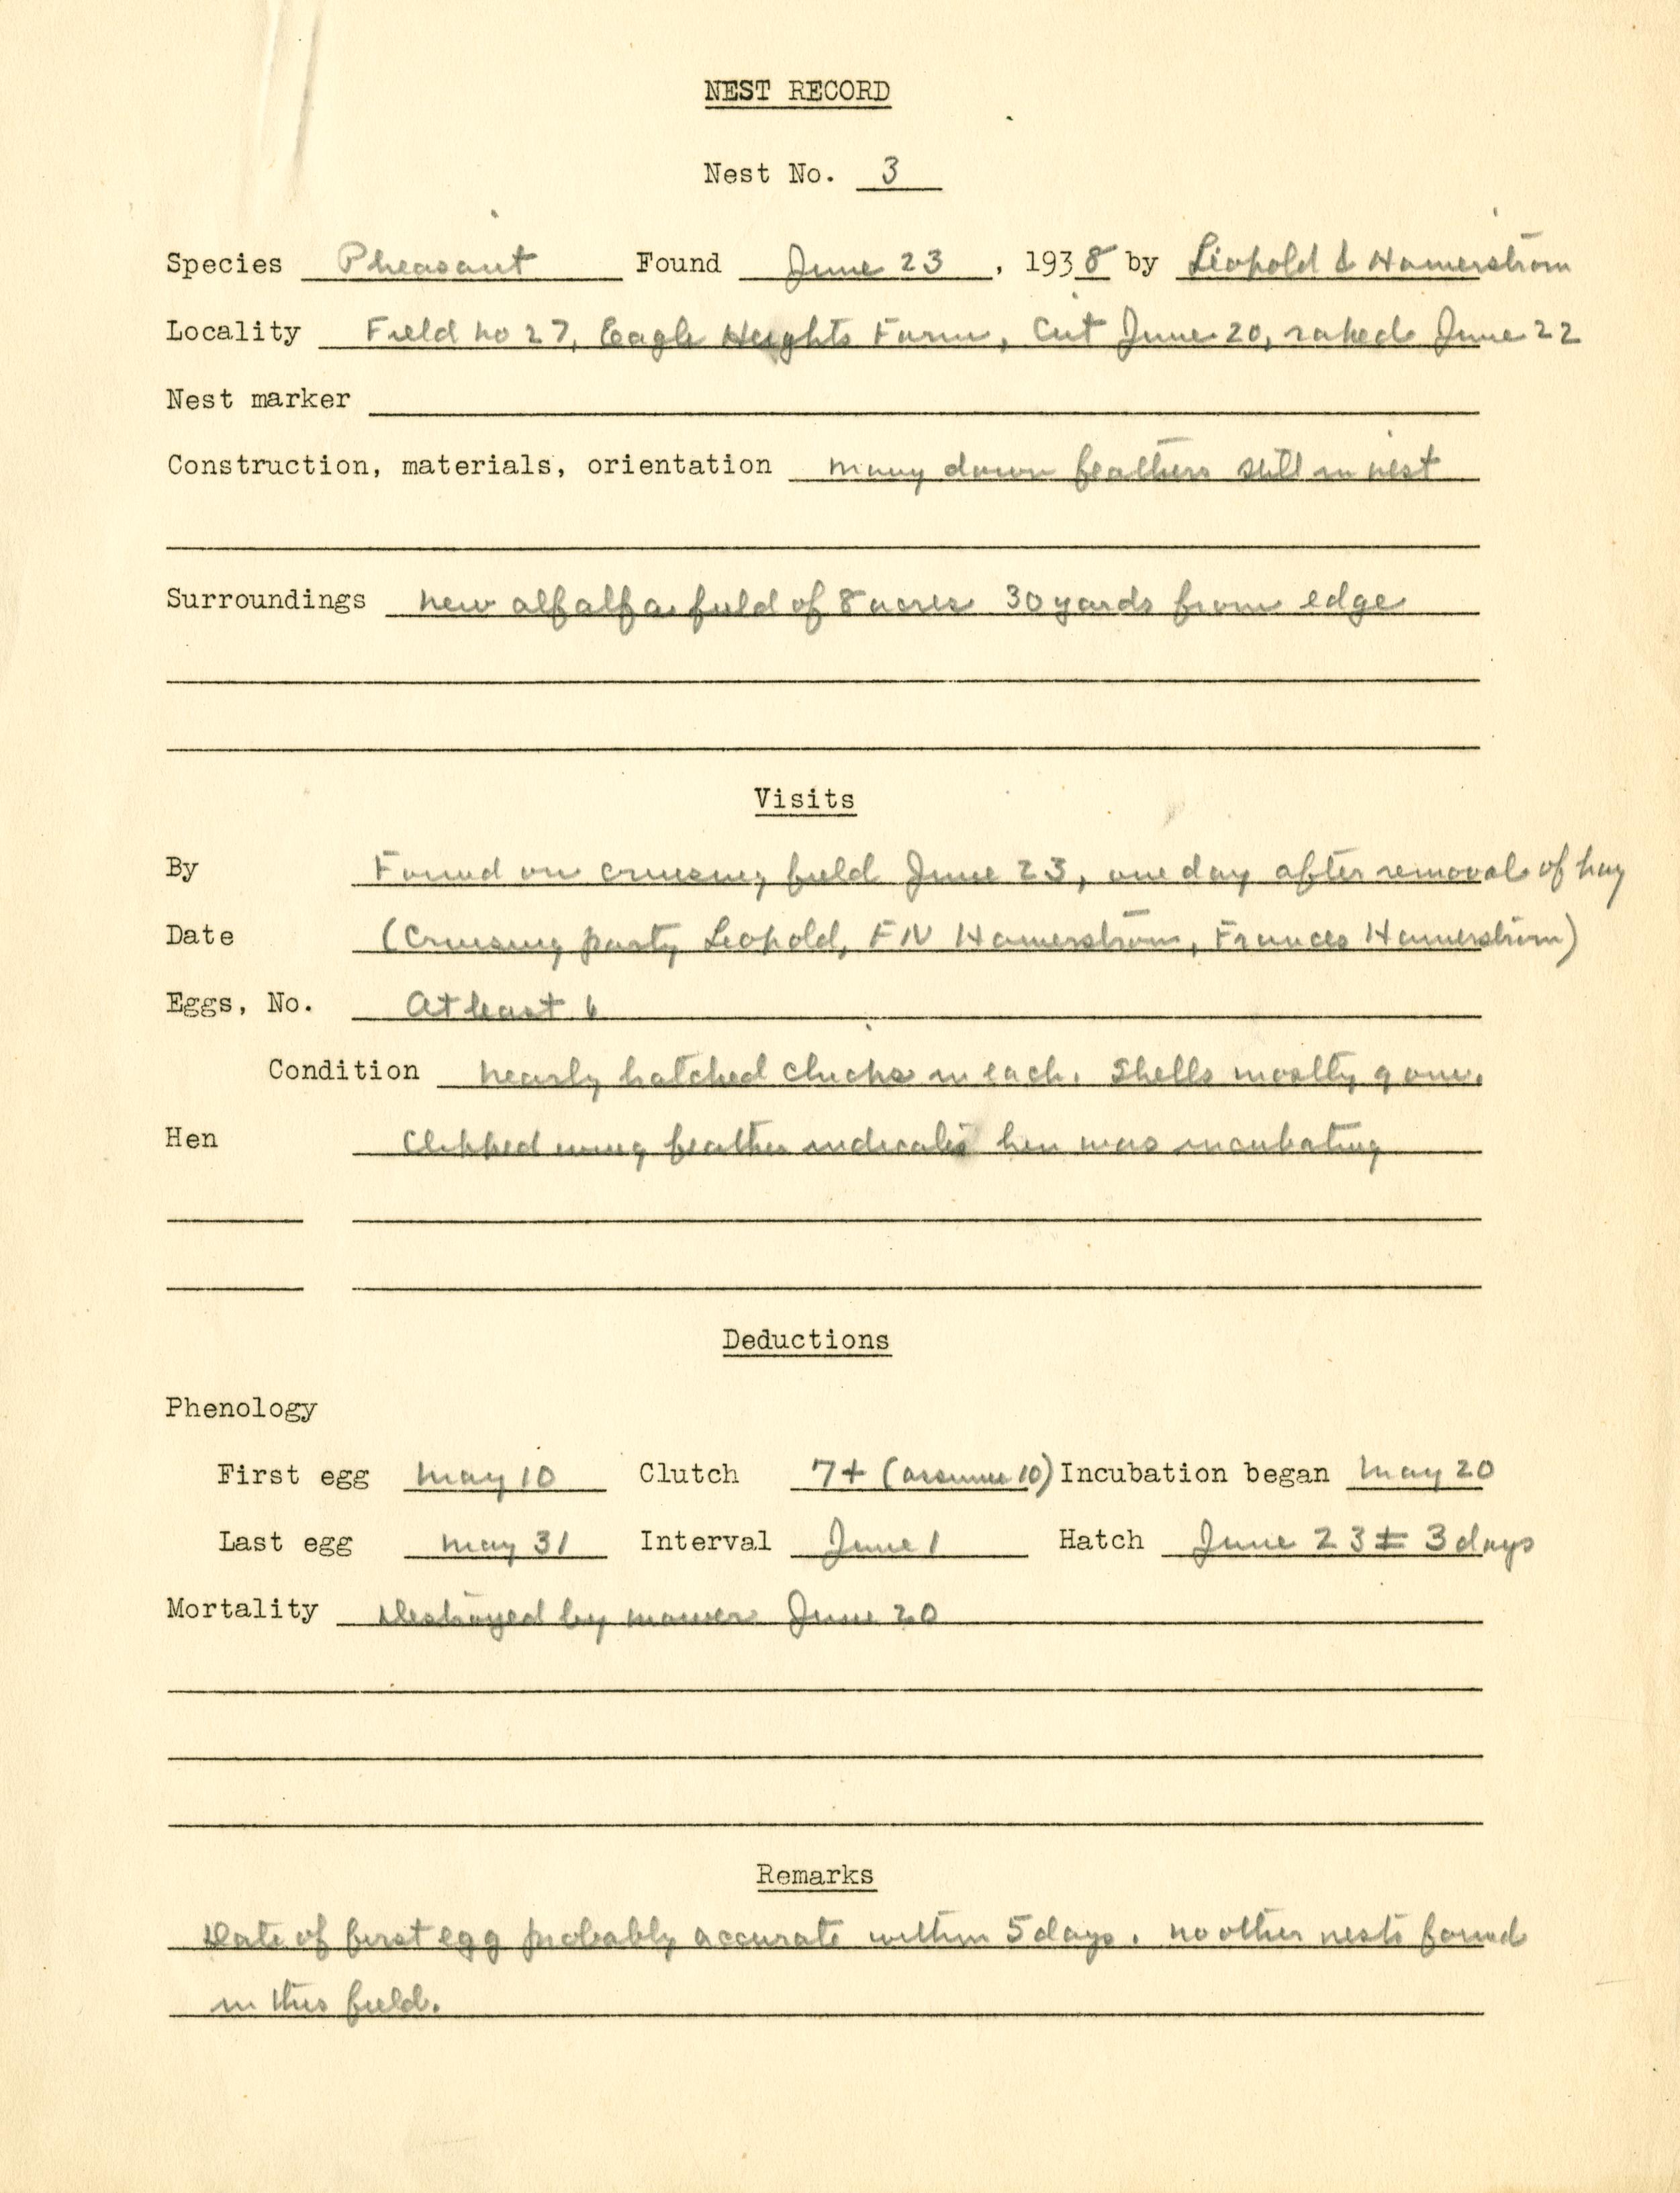 NEST RECORD
Nest No. 3
Species Pheasant Found June 23, 1938 by Leopold & Hamerstrom
Locality Field no 27, Eagle Heights Farm, Cut June 20, raked June 22
Nest marker
Construction, materials, orientation many down feathers still in nest
Surroundings new alfalfa field of 8 acres 30 yards from edge
Visits
By Found on cruising field June 23, one day after removal of hay
Date (Cruising party Leopold, FN Hamerstrom, Frances Hamerstrom)
Eggs, No. At least 6
Condition nearly hatched chicks in each. Shells mostly gone.
Hen Clipped wing feather indicates hen was incubating
Deductions
Phenology
First egg May 10 Clutch 7+ (assume 10) Incubation began May 20
Last egg May 31 Interval June 1 Hatch June 23 ± 3 days
Mortality Destroyed by mower June 20
Remarks
Date of first egg probably accurate within 5 days. no other nests found
in this field.